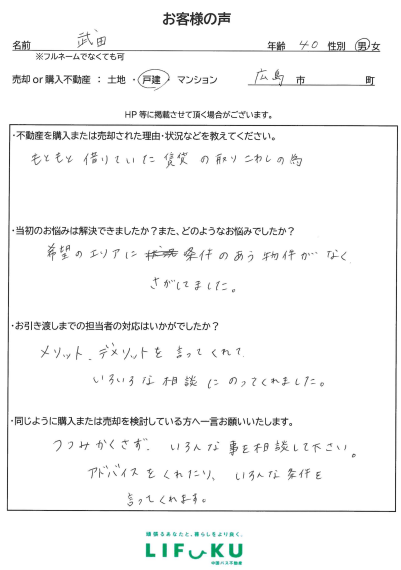 お客様の声
名前 武田 年齢 40 性別 男・女
※フルネームでなくても可
売却 or 購入不動産 ： 土地 ・ 戸建 ・ マンション 広島 市 町
HP 等に掲載させて頂く場合がございます。
・不動産を購入または売却された理由・状況などを教えてください。
もともと借りていた賃貸の取りこわしの為
・当初のお悩みは解決できましたか？また、どのようなお悩みでしたか？
希望のエリアに 条件のあう物件がなく
さがしてました。
・お引き渡しまでの担当者の対応はいかがでしたか？
メリット、デメリットを言ってくれて
いろいろな相談にのってくれました。
・同じように購入または売却を検討している方へ一言お願いいたします。
つつみかくさず、いろんな事を相談して下さい。
アドバイスをくれたり、いろんな条件を
言ってくれます。
頑張るあなたと、暮らしをより良く。
LIFUKU
中国バス不動産